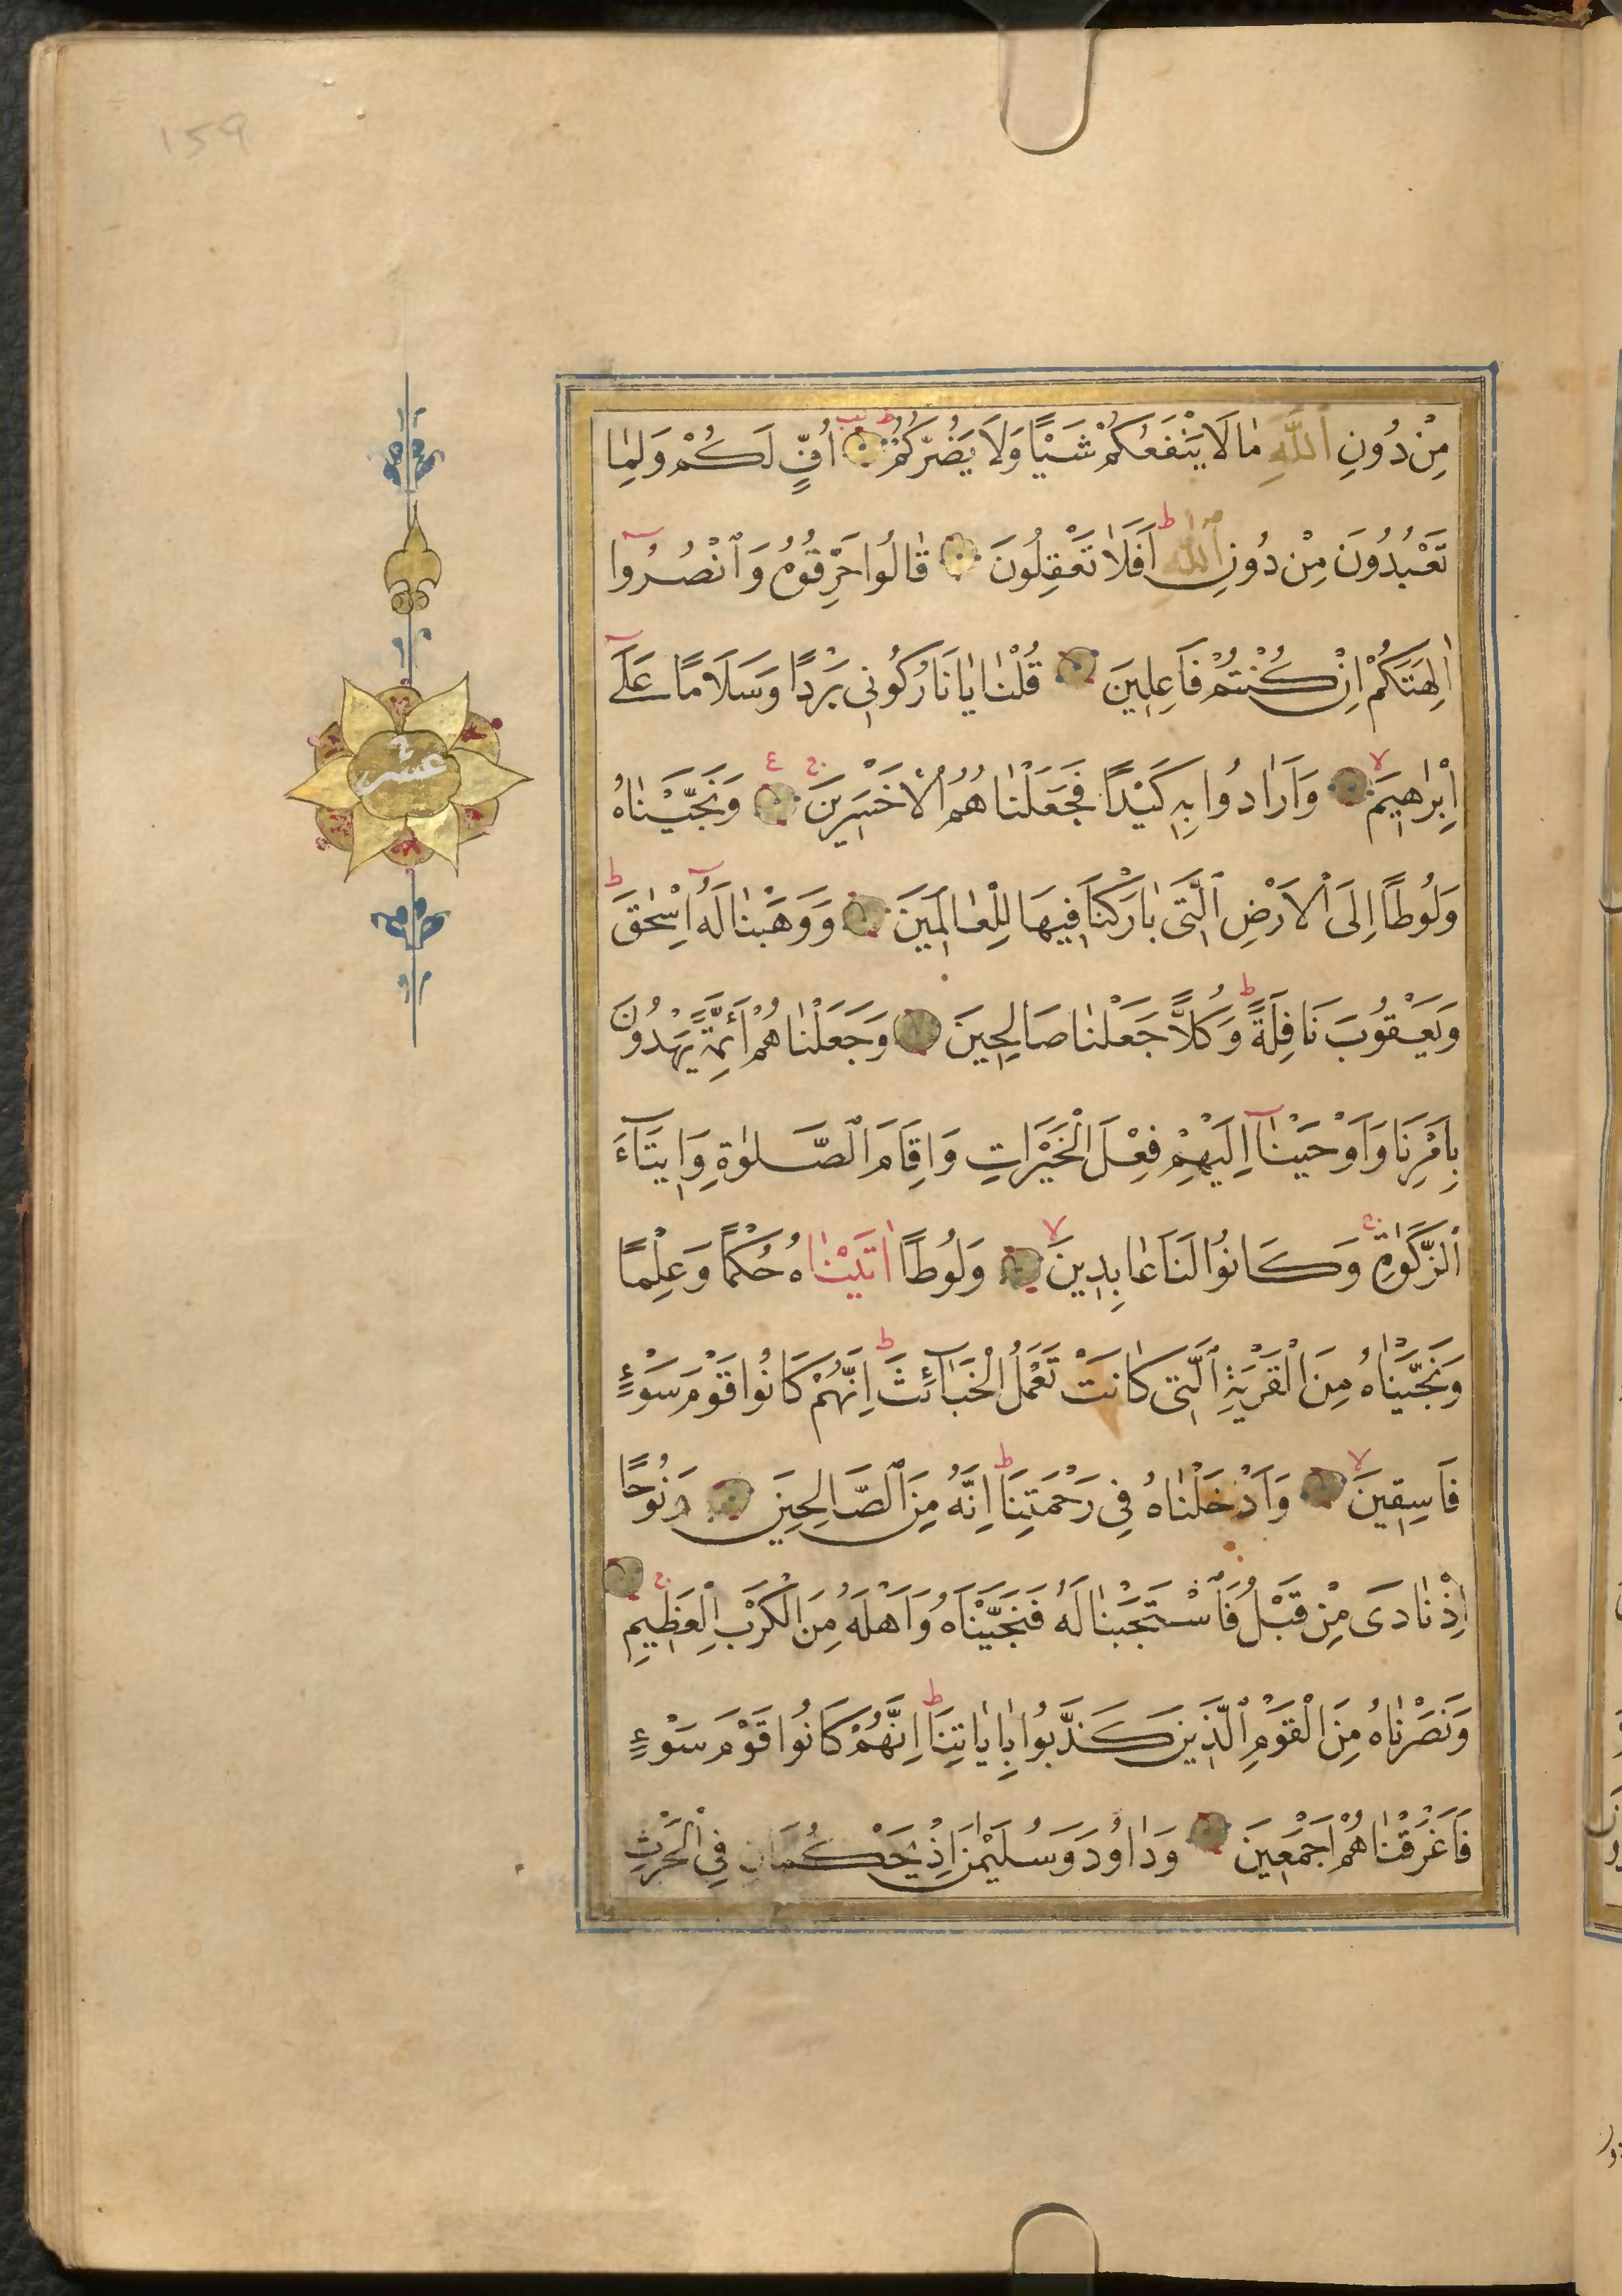 159
مِنْ دُونِ اللّٰهِ مَا لَا يَنْفَعُكُمْ شَيْـًٔا وَلَا يَضُرُّكُمْ ط يب اُفٍّ لَكُمْ وَلِمَا
تَعْبُدُونَ مِنْ دُونِ اللّٰهِ ط اَفَلَا تَعْقِلُونَ قَالُوا حَرِّقُوهُ وَانْصُرُوٓا
اٰلِهَتَكُمْ اِنْ كُنْتُمْ فَاعِلِينَ قُلْنَا يَا نَارُ كُونِي بَرْدًا وَسَلَامًا عَلٰٓى
اِبْرٰهِيمَ لا وَاَرَادُوا بِهِ كَيْدًا فَجَعَلْنَاهُمُ الْاَخْسَرِينَ ج ع وَنَجَّيْنَاهُ
وَلُوطًا اِلَى الْاَرْضِ الَّتِي بَارَكْنَا فِيهَا لِلْعَالَمِينَ وَوَهَبْنَا لَهُٓ اِسْحٰقَ ط
وَيَعْقُوبَ نَافِلَةً ط وَكُلًّا جَعَلْنَا صَالِحِينَ وَجَعَلْنَاهُمْ اَئِمَّةً يَهْدُونَ
بِاَمْرِنَا وَاَوْحَيْنَٓا اِلَيْهِمْ فِعْلَ الْخَيْرَاتِ وَاِقَامَ الصَّلٰوةِ وَاِيتَٓاءَ
الزَّكٰوةِ ج وَكَانُوا لَنَا عَابِدِينَ لا وَلُوطًا اٰتَيْنَاهُ حُكْمًا وَعِلْمًا
وَنَجَّيْنَاهُ مِنَ الْقَرْيَةِ الَّتِي كَانَتْ تَعْمَلُ الْخَبَٓائِثَ ط اِنَّهُمْ كَانُوا قَوْمَ سَوْءٍ
فَاسِقِينَ لا وَاَدْخَلْنَاهُ فِي رَحْمَتِنَا ط اِنَّهُ مِنَ الصَّالِحِينَ وَنُوحًا
اِذْ نَادَى مِنْ قَبْلُ فَاسْتَجَبْنَا لَهُ فَنَجَّيْنَاهُ وَاَهْلَهُ مِنَ الْكَرْبِ الْعَظِيمِ ج
وَنَصَرْنَاهُ مِنَ الْقَوْمِ الَّذِينَ كَذَّبُوا بِاٰيَاتِنَا ط اِنَّهُمْ كَانُوا قَوْمَ سَوْءٍ
فَاَغْرَقْنَاهُمْ اَجْمَعِينَ وَدَاوُدَ وَسُلَيْمٰنَ اِذْ يَحْكُمَانِ فِي الْحَرْثِ
عشر